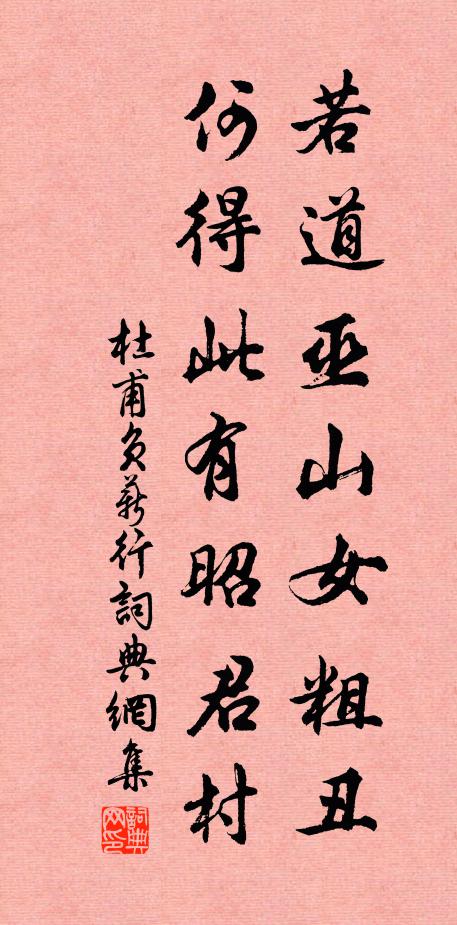 若道巫山女粗丑
何得此有昭君村
杜甫负薪行詞典網集
詞典网印